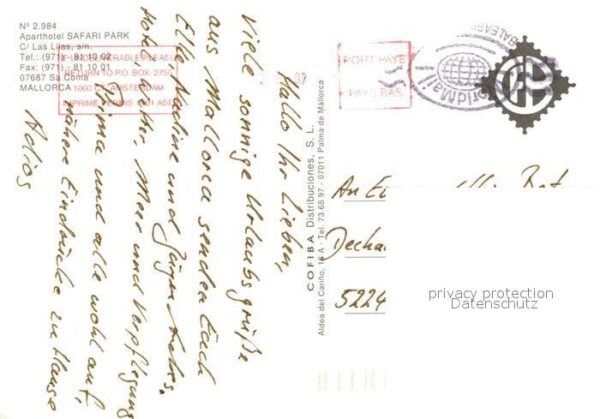 Nº 2.984
Aparthotel SAFARI PARK
C/ Las Lilas, s/n.
Tel.: (971) - 81 10 02
Fax: (971) - 81 10 01
07687 Sa Coma
MALLORCA
RETURN TO P.O. BOX: 2750
1000 CT AMSTERDAM
PORT PAYE
PAYS BAS
WorldMail
BALEAR
Hallo Ihr Lieben,
Viele sonnige Urlaubsgrüße
aus Mallorca senden Euch
und Jürgen
Hotel, Meer und Verpflegung
prima und alle wohlauf,
Eindrücke zu Hause
Adios
COFIBA Distribuciones, S. L.
Aldea del Cariño, 16 A - Tel. 73 68 97 - 07011 Palma de Mallorca
An
Decha
5224
privacy protection
Datenschutz